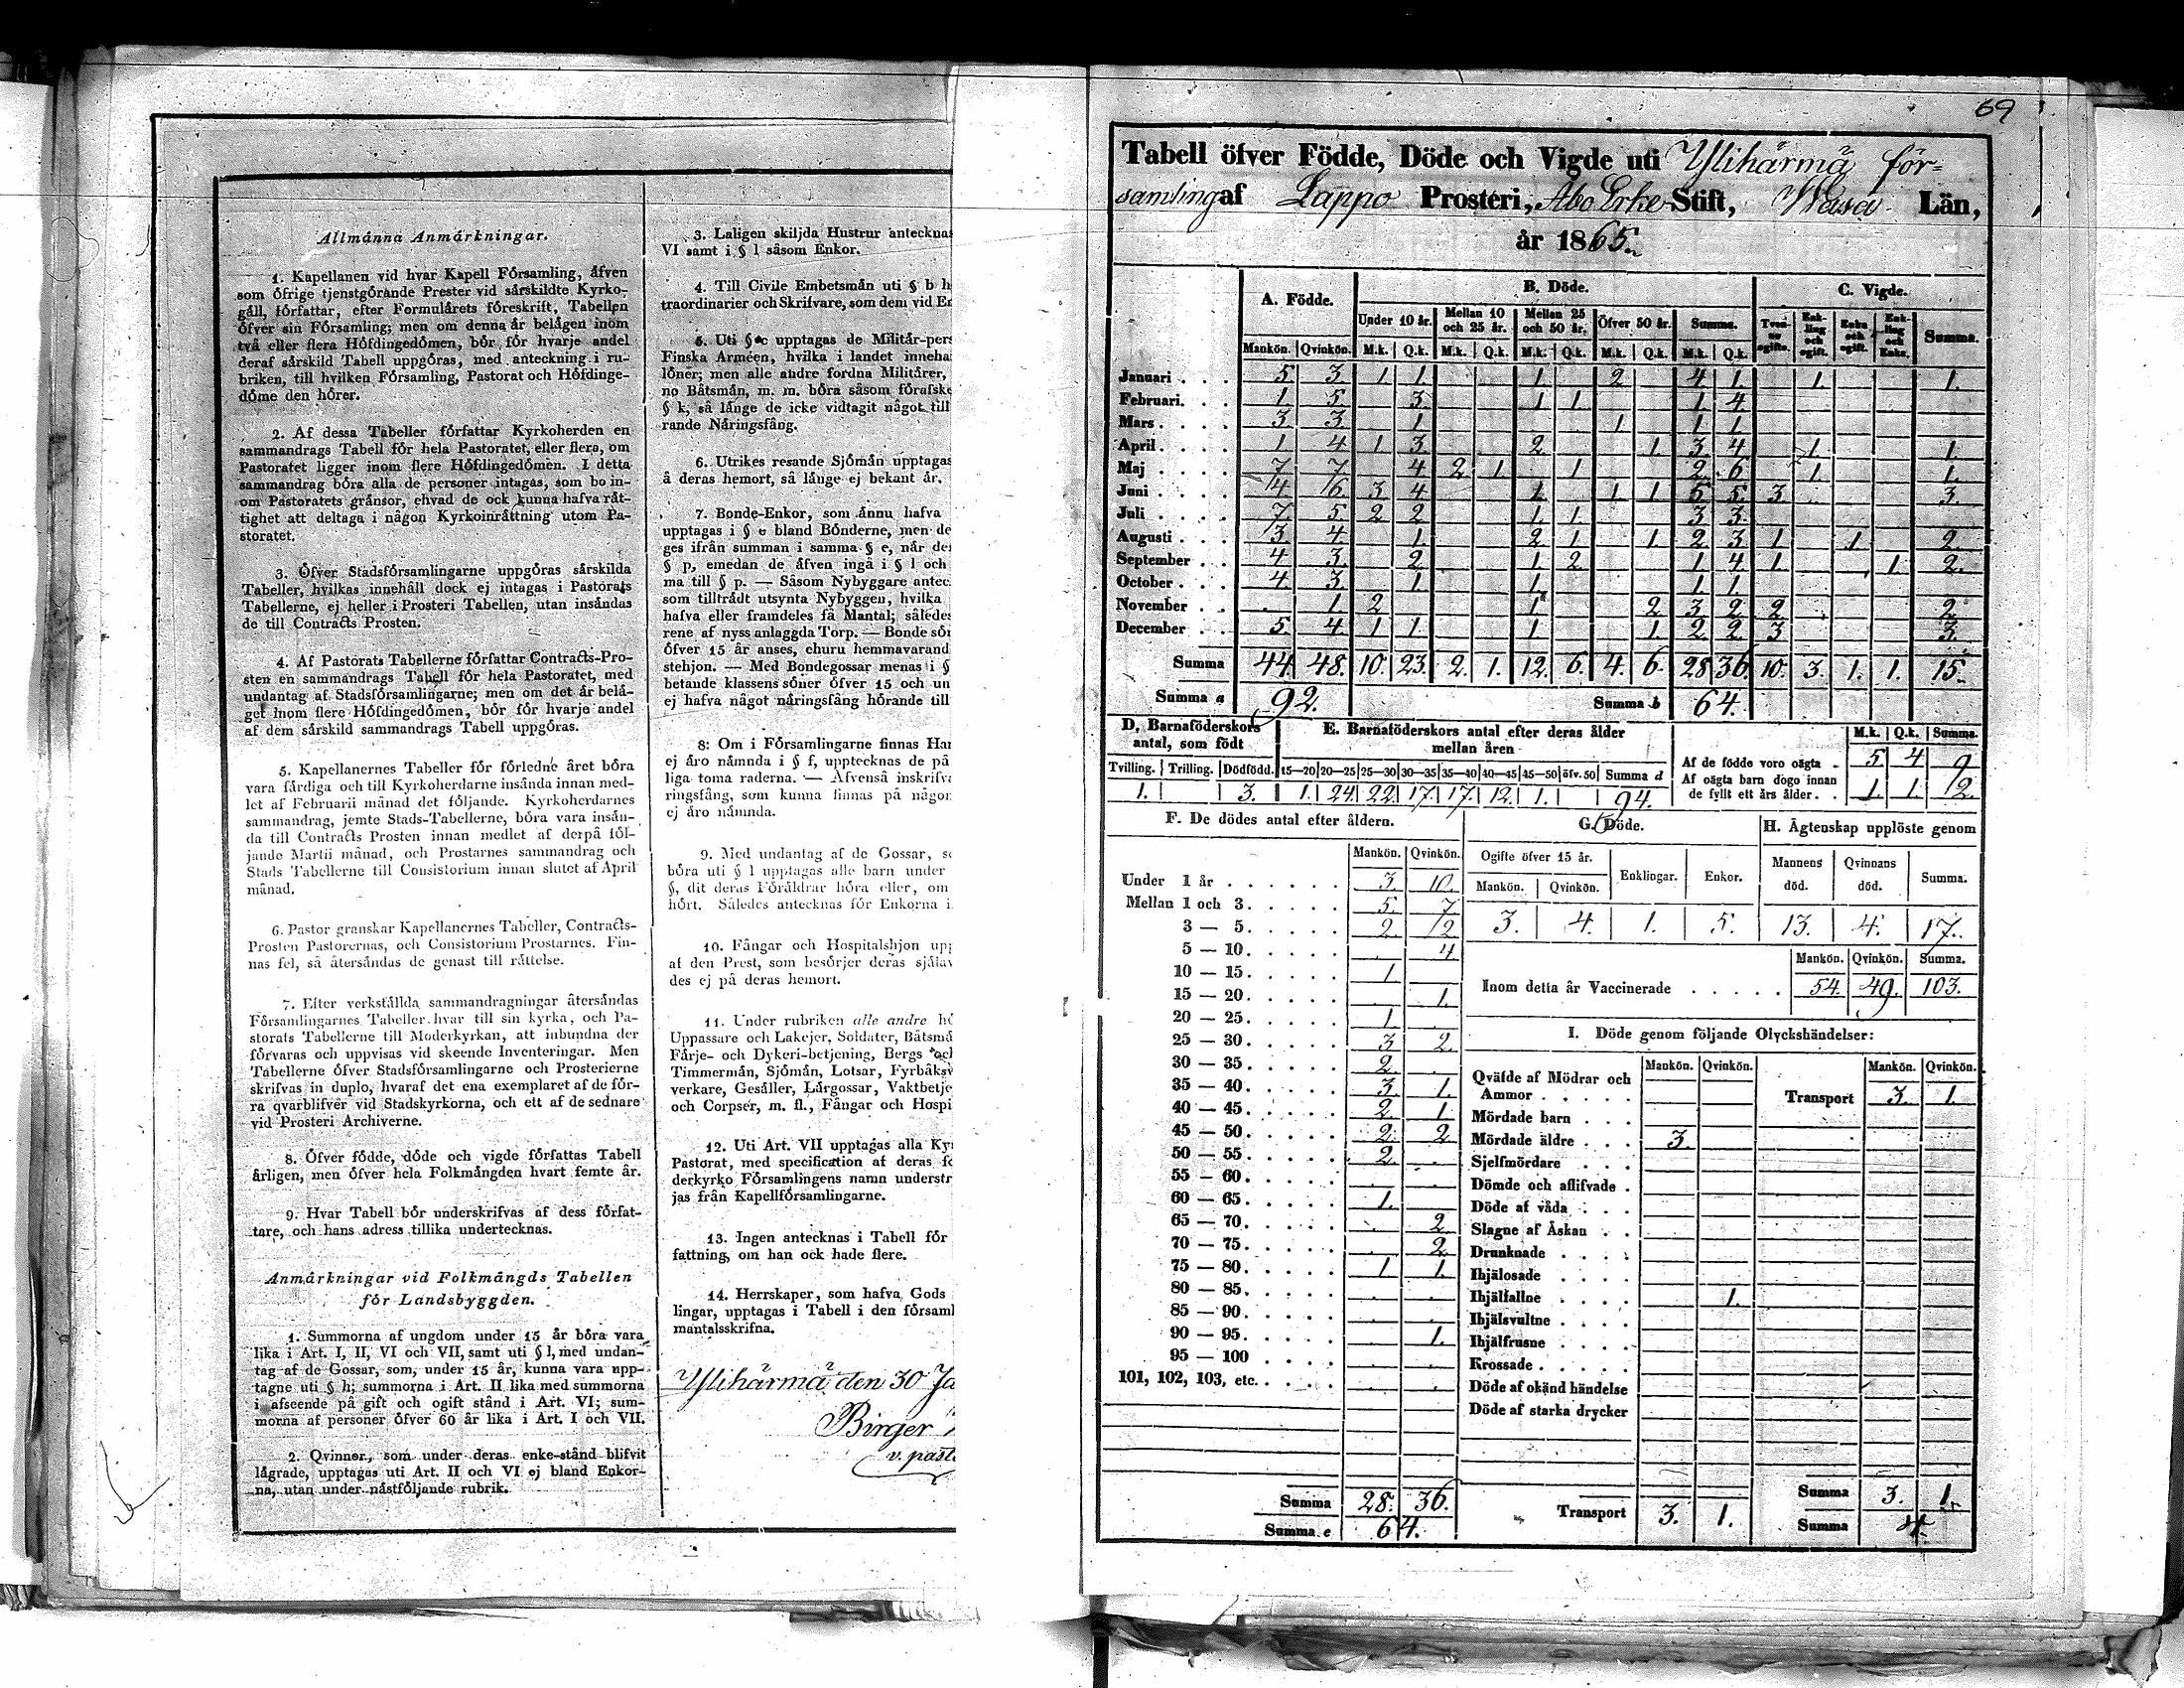 Allmánna Anmárkningar.
1. Kapellanen vid hvar Kapell Fórsamling, áfven
som ófrige tjenstgórande Prester vid sárskildte Kyrko-
gáll, fórfattar, efter Formulárets fóreskrift, Tabellen
ófver sin Fórsamling; men om denna ár belágen inom
två eller flera Hófdingedómen, bór fór hvarje andel
deraf sárskild Tabell uppgóras, med anteckning i ru-
briken, till hvilken Fórsamling, Pastorat och Hófdinge-
dóme den hórer.
2. Af dessa Tabeller fórfattar Kyrkoherden en
sammandrags Tabell fór hela Pastoratet, eller flera, om
Pastoratet ligger inom flere Hófdingedómen. I detta
sammandrag bóra alla de personer intagas, som bo in-
om Pastoratets gránsor, ehvad de ock kunna hafva rát-
tighet att deltaga i någon Kyrkoinráttning utom Pa-
storatet.
3. Ófver Stadsfórsamlingarne uppgóras sárskilda
Tabeller, hvilkas innehåll dock ej intagas i Pastorats
Tabellerne, ej heller i Prosteri Tabellen, utan insándas
de till Contracts Prosten.
4. Af Pastorats Tabellerne fórfattar Contracts-Pro-
sten en sammandrags Tabell fór hela Pastoratet, med
undantag af Stadsfórsamlingarne; men om det ár belá-
get inom flere Hófdingedómen, bór fór hvarje andel
af dem sárskild sammandrags Tabell uppgóras.
5. Kapellanernes Tabeller fór fórledne året bóra
vara fárdiga och till Kyrkoherdarne insánda innan med-
let af Februarii månad det fóljande. Kyrkoherdarnes
sammandrag, jemte Stads-Tabellerne, bóra vara insán-
da till Contracts Prosten innan medlet af derpå fól-
jande Martii månad, och Prostarnes sammandrag och
Stads Tabellerne till Consistorium innan slutet af April
månad.
6. Pastor granskar Kapellanernes Tabeller, Contracts-
Prosten Pastorernas, och Consistorium Prostarnes. Fin-
nas fel, så återsándas de genast till ráttelse.
7. Efter verkstállda sammandragningar återsándas
Fórsamlingarnes Tabeller hvar till sin kyrka, och Pa-
storats Tabellerne till Moderkyrkan, att inbundna der
fórvaras och uppvisas vid skeende Inventeringar. Men
Tabellerne ófver Stadsfórsamlingarne och Prosterierne
skrifvas in duplo, hvaraf det ena exemplaret af de fór-
ra qvarblifver vid Stadskyrkorna, och ett af de sednare
vid Prosteri Archiverne.
8. Ófver fódde, dóde och vigde fórfattas Tabell
årligen, men ófver hela Folkmángden hvart femte år.
9. Hvar Tabell bór underskrifvas af dess fórfat-
tare, och hans adress tillika undertecknas.
Anmárkningar vid Folkmángds Tabellen
fór Landsbyggden.
1. Summorna af ungdom under 15 år bóra vara
lika i Art. I, II, VI och VII, samt uti § l, med undan-
tag af de Gossar, som, under 15 år, kunna vara upp-
tagne uti § h; summorna i Art. II lika med summorna
i afseende på gift och ogift stånd i Art. VI; sum-
morna af personer ófver 60 år lika i Art. I och VII.
2. Qvinnor, som under deras enke-stånd blifvit
lágrade, upptagas uti Art. II och VI ej bland Enkor-
na, utan under nástfóljande rubrik.
3. Laligen skiljda Hustrur antecknas
VI samt i § l såsom Enkor.
4. Till Civile Embetsmán uti § b h
traordinarier och Skrifvare, som dem vid Er
5. Uti § c upptagas de Militár-pers
Finska Arméen, hvilka i landet inneha
lóner; men alle andre fordna Militárer,
no Båtsmán, m. m. bóra såsom fórafske
§ k, så långe de icke vidtagit något till
rande Náringsfång.
6. Utrikes resande Sjómán upptagas
å deras hemort, så långe ej bekant ár.
7. Bonde-Enkor, som ánnu hafva
upptagas i § e bland Bónderne, men de
ges ifrån summan i samma § e, når de
§ p, emedan de áfven ingå i § l och
ma till § p. — Såsom Nybyggare antec
som tilltrádt utsynta Nybyggen, hvilka
hafva eller framdeles få Mantal; således
rene af nyss anlaggda Torp. — Bonde són
ófver 15 år anses, ehuru hemmavarand
stehjon. — Med Bondegossar menas i §
betande klassens sóner ófver 15 och un
ej hafva något náringsfång hórande till
8: Om i Fórsamlingarne finnas Han
ej áro námnda i § f, upptecknas de på
liga toma raderna. — Áfvenså inskrifva
ringsfång, som kunna finnas på någon
ej áro námnda.
9. Med undantag af de Gossar, s
bóra uti § l upptagas alle barn under
§, dit deras Fóráldrar hóra eller, om
hórt. Således antecknas fór Enkorna i
10. Fångar och Hospitalshjon upp
af den Prest, som besórjer deras sjálav
des ej på deras hemort.
11. Under rubriken alle andre hó
Uppassare och Lakejer, Soldater, Båtsmá
Fárje- och Dykeri-betjening, Bergs och
Timmermán, Sjómán, Lotsar, Fyrbåksv
verkare, Gesáller, Lárgossar, Vaktbetje
och Corpser, m. fl., Fångar och Hospi
12. Uti Art. VII upptagas alla Kyr
Pastorat, med specification af deras fó
derkyrko Fórsamlingens namn understr
jas från Kapellfórsamlingarne.
13. Ingen antecknas i Tabell fór
fattning, om han ock hade flere.
14. Herrskaper, som hafva Gods
lingar, upptagas i Tabell i den fórsaml
mantalsskrifna.
Ylihärmä den 30 Ja
Birger
v. past
69
Tabell öfver Födde, Döde och Vigde uti Ylihärmä för=
samling af Lappo Prosteri, Åbo Erke-Stift, Wasa Län,
år 1865.
A. Födde. B. Döde. C. Vigde.
Under 10 år. Mellan 10 och 25 år. Mellan 25 och 50 år. Öfver 50 år. Summa. Tvenne ogifte. Enkling och ogift. Enka och ogift. Enkling och Enka. Summa.
Mankön. Qvinkön. M.k. Q.k. M.k. Q.k. M.k. Q.k. M.k. Q.k. M.k. Q.k.
Januari 5 3 1 1 1 2 4 1 1 1
Februari 1 5 3 1 1 1 4
Mars 3 3 1 1 1 1
April 1 4 1 3 2 1 3 4 1 1
Maj 7 7 4 2 1 1 2 6 1 1
Juni 4 6 3 4 1 1 1 5 5 3 3
Juli 7 5 2 2 1 1 3 3
Augusti 3 4 1 2 1 1 2 3 1 1 2
September 4 3 2 1 2 1 4 1 1 2
October 4 3 1 1 1 1
November 1 2 1 2 3 2 2 2
December 5 4 1 1 1 1 2 2 3 3
Summa 44. 48. 10. 23. 2. 1. 12. 6. 4. 6. 28 36. 10. 3. 1. 1. 15.
Summa a 92. Summa b 64.
D. Barnaföderskors antal, som födt
Tvilling. Trilling. Dödfödd.
1. 3.
E. Barnaföderskors antal efter deras ålder
mellan åren
15—20 20—25 25—30 30—35 35—40 40—45 45—50 öfv. 50 Summa d
1. 24. 22. 17. 17. 12. 1. 94.
M.k. Q.k. Summa.
Af de födde voro oägta 5 4 9
Af oägta barn dogo innan
de fyllt ett års ålder 1. 1. 2.
F. De dödes antal efter åldern.
Mankön. Qvinkön.
Under 1 år 3 10.
Mellan 1 och 3 5. 7
3 — 5 2 2
5 — 10 4
10 — 15 1
15 — 20 1.
20 — 25 1
25 — 30 3 2
30 — 35 2
35 — 40 3 1.
40 — 45 2 1
45 — 50 2 2
50 — 55 2
55 — 60
60 — 65 1.
65 — 70 2
70 — 75 2
75 — 80 1 1.
80 — 85
85 — 90
90 — 95 1.
95 — 100
101, 102, 103, etc.
Summa 28. 36.
Summa e 64.
G. Döde.
Ogifte öfver 15 år. Enklingar. Enkor.
Mankön. Qvinkön.
3. 4. 1. 5.
H. Ägtenskap upplöste genom
Mannens död. Qvinnans död. Summa.
13. 4. 17.
Mankön. Qvinkön. Summa.
Inom detta år Vaccinerade 54. 49. 103.
I. Döde genom följande Olyckshändelser:
Mankön. Qvinkön. Mankön. Qvinkön.
Qväfde af Mödrar och
Ammor Transport 3. 1.
Mördade barn
Mördade äldre 3.
Sjelfmördare
Dömde och aflifvade
Döde af våda
Slagne af Åskan
Drunknade
Ihjälosade
Ihjälfallne 1.
Ihjälsvultne
Ihjälfrusne
Krossade
Döde af okänd händelse
Döde af starka drycker
Transport 3. 1.
Summa 3. 1.
Summa 4.